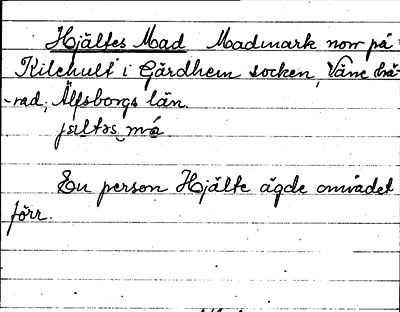 Hjältes Mad Madmark norr på
Kilehult i Gärdhem socken, Väne hä-
-rad, Älfsborgs län.
jæltəs må.
En person Hjälte ägde området
förr.